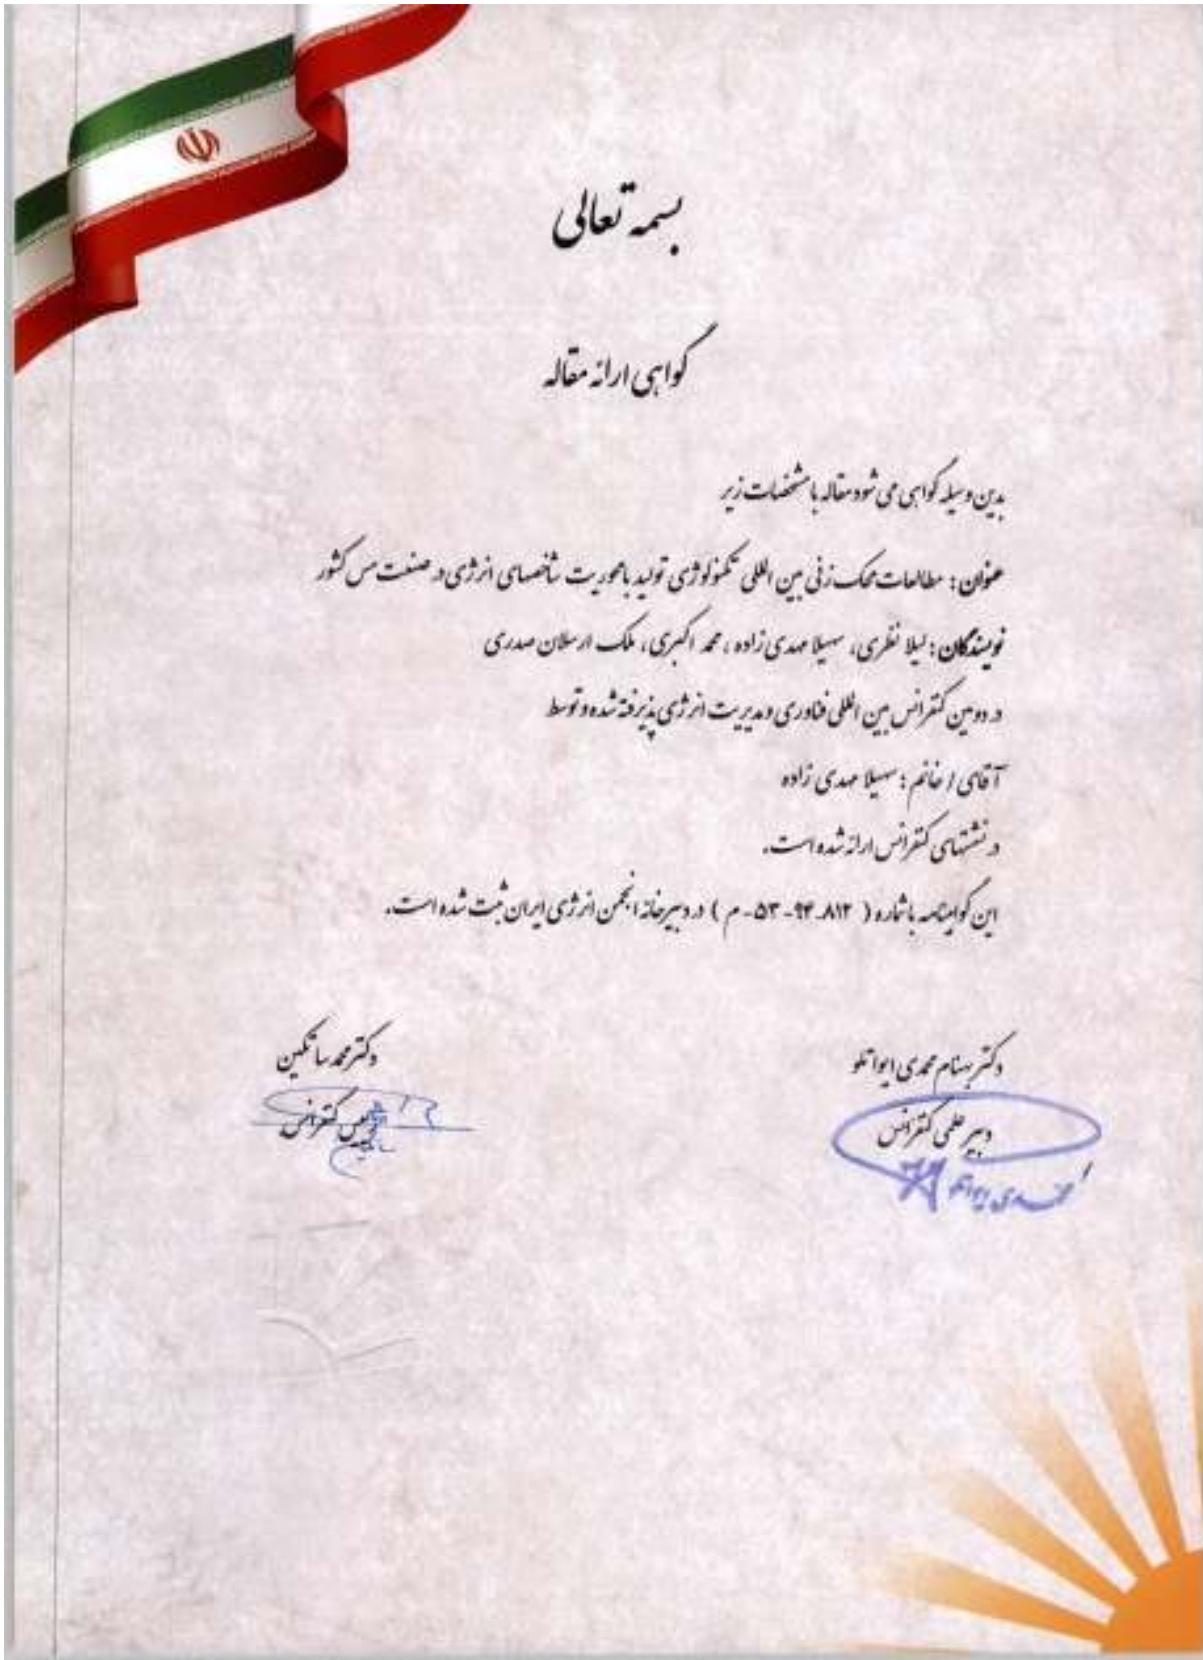 بسمه تعالی
گواهی ارائه مقاله
بدین وسیله گواهی می شود مقاله با مشخصات زیر
عنوان : مطالعات محک زنی بین المللی تکنولوژی تولید با محوریت شاخصهای انرژی در صنعت مس کشور
نویسندگان : لیلا نظری، سهیلا مهدی زاده ، محمد اکبری، ملک ارسلان صدری
در دومین کنفرانس بین المللی فناوری و مدیریت انرژی پذیرفته شده و توسط
آقای / خانم : سهیلا مهدی زاده
در نشستهای کنفرانس ارائه شده است.
این گواهینامه با شماره ( ۸۱۲-۹۴-۵۳-م ) در دبیرخانه انجمن انرژی ایران ثبت شده است.
دکتر بهنام محمدی ایواتلو
دبیر علمی کنفرانس
دکتر محمد ساتکین
رئیس کنفرانس